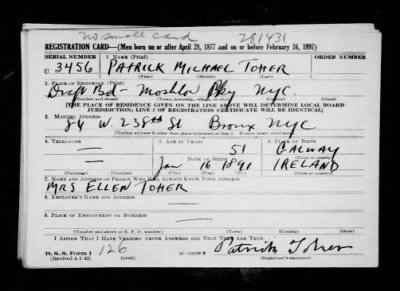 no small card 281431
REGISTRATION CARD—(Men born on or after April 28, 1877 and on or before February 16, 1897)
SERIAL NUMBER 1. NAME (Print) ORDER NUMBER
U 3456 PATRICK MICHAEL TOHER
(First) (Middle) (Last)
2. PLACE OF RESIDENCE (Print)
Draft Bd - Moshlou Pky NYC.
(Number and street) (Town, township, village, or city) (County) (State)
[THE PLACE OF RESIDENCE GIVEN ON THE LINE ABOVE WILL DETERMINE LOCAL BOARD
JURISDICTION; LINE 2 OF REGISTRATION CERTIFICATE WILL BE IDENTICAL]
3. MAILING ADDRESS
84 W. 238th St Bronx NYC
[Mailing address if other than place indicated on line 2. If same insert word same]
4. TELEPHONE 5. AGE IN YEARS 6. PLACE OF BIRTH
51 GALWAY
DATE OF BIRTH (Town or county)
Jan 16 1891 IRELAND
(Exchange) (Number) (Mo.) (Day) (Yr.) (State or country)
7. NAME AND ADDRESS OF PERSON WHO WILL ALWAYS KNOW YOUR ADDRESS
MRS ELLEN TOHER
8. EMPLOYER'S NAME AND ADDRESS
9. PLACE OF EMPLOYMENT OR BUSINESS
(Number and street or R. F. D. number) (Town) (County) (State)
I AFFIRM THAT I HAVE VERIFIED ABOVE ANSWERS AND THAT THEY ARE TRUE.
D. S. S. Form 1
(Revised 4-1-42) 126 Patrick Toher
(Registrant's signature)